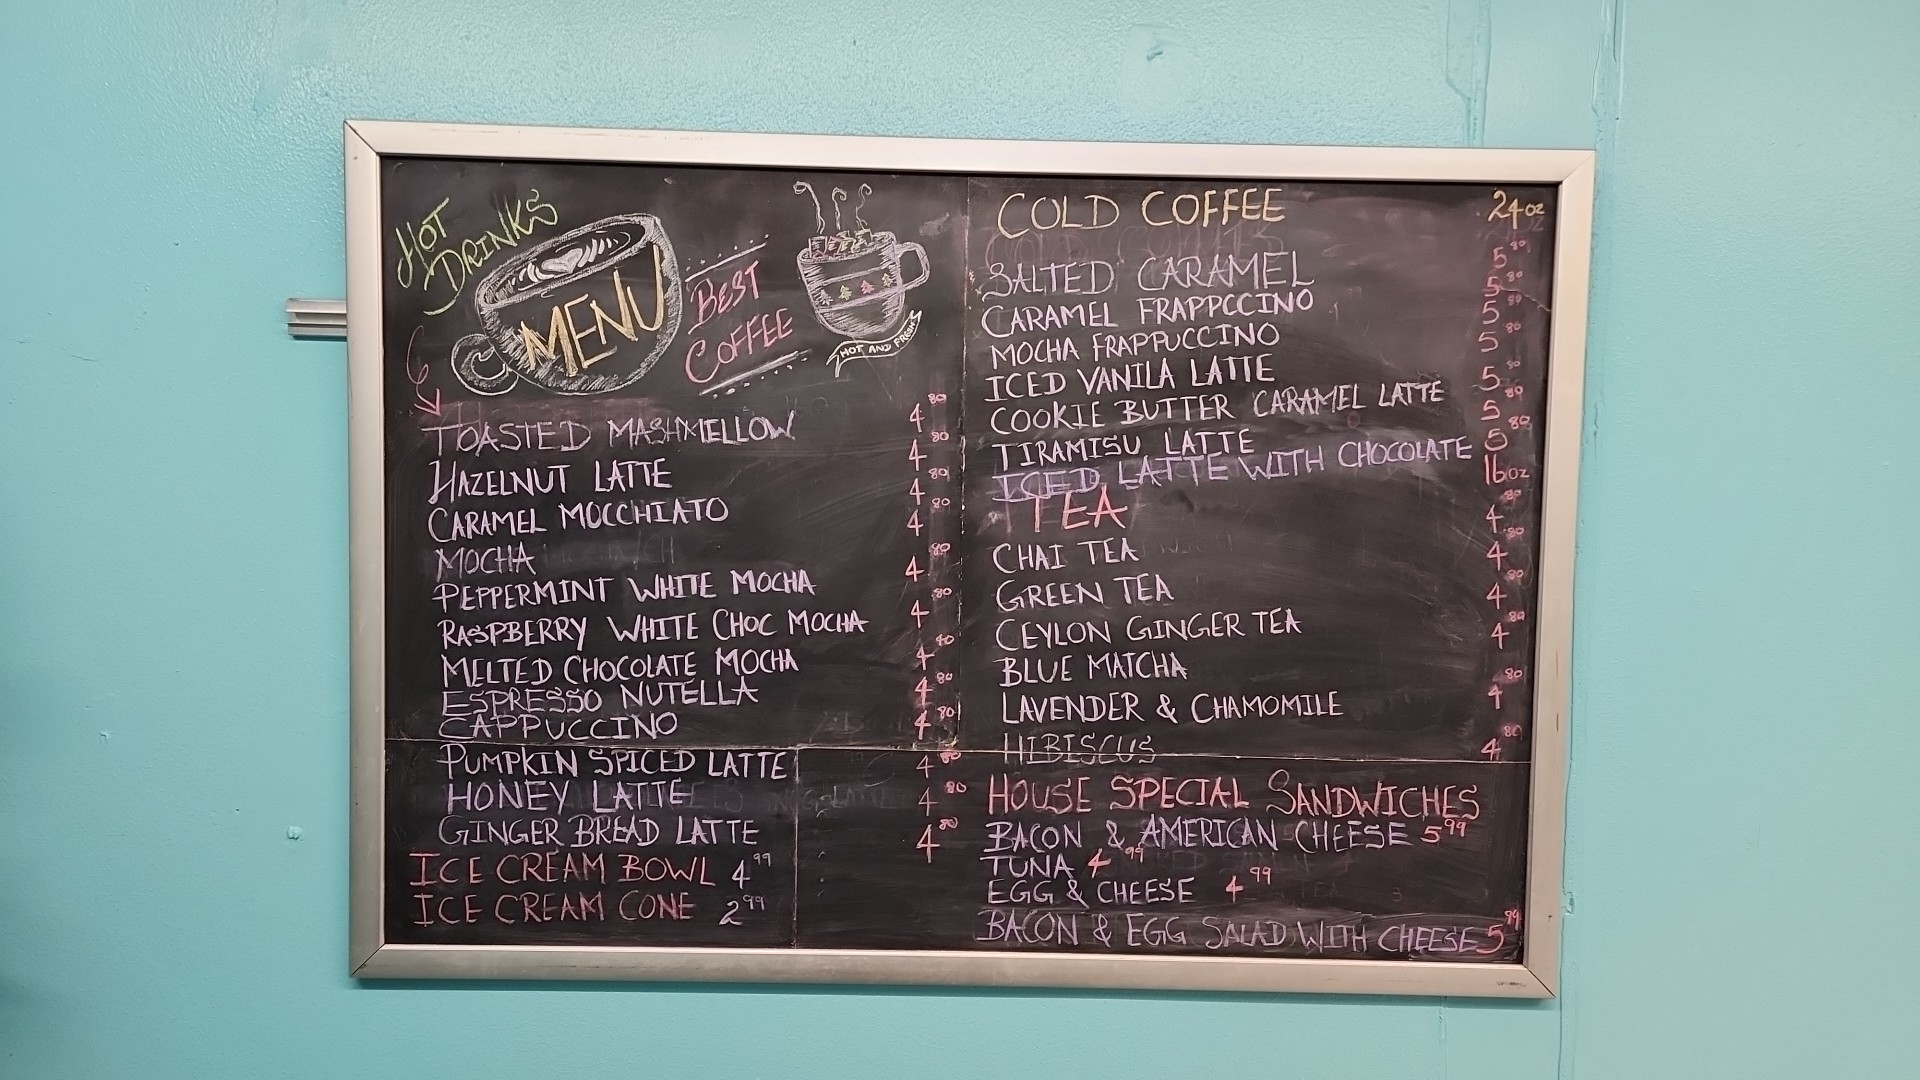 HOT
DRINKS
MENU
BEST
COFFEE
HOT AND FRESH
TOASTED MASHMELLOW 4 80
HAZELNUT LATTE 4 80
CARAMEL MOCCHIATO 4 80
MOCHA 4 80
PEPPERMINT WHITE MOCHA 4 80
RASPBERRY WHITE CHOC MOCHA 4 80
MELTED CHOCOLATE MOCHA 4 80
ESPRESSO NUTELLA 4 80
CAPPUCCINO 4 80
PUMPKIN SPICED LATTE 4 80
HONEY LATTE 4 80
GINGER BREAD LATTE 4 80
ICE CREAM BOWL 4 99
ICE CREAM CONE 2 99
COLD COFFEE 24 oz
SALTED CARAMEL 5 80
CARAMEL FRAPPCCINO 5 80
MOCHA FRAPPUCCINO 5 80
ICED VANILA LATTE 5 80
COOKIE BUTTER CARAMEL LATTE 5 80
TIRAMISU LATTE 5 80
ICED LATTE WITH CHOCOLATE 5 80
TEA 16oz
CHAI TEA 4 80
GREEN TEA 4 80
CEYLON GINGER TEA 4 80
BLUE MATCHA 4 80
LAVENDER & CHAMOMILE 4 80
HIBISCUS 4 80
HOUSE SPECIAL SANDWICHES
BACON & AMERICAN CHEESE 5 99
TUNA 4 99
EGG & CHEESE 4 99
BACON & EGG SALAD WITH CHEESE 5 99